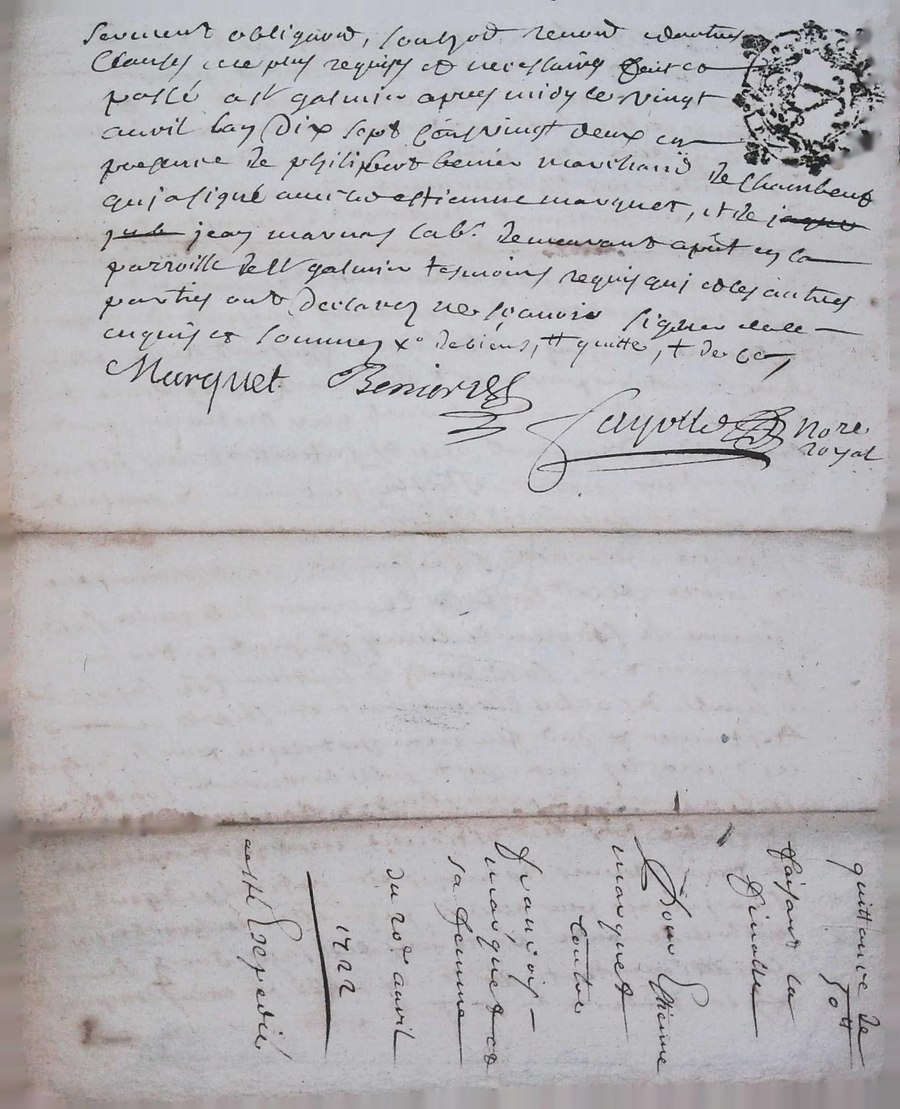 serment obligaōn, soubzōn renonōn et autres
Clauses ce plus requises et necessaires faict et
passé a St galmier apres midy le vingt
auvril lan Dix sept Cens vingt deux en
presence de philibert benier marchand de Chambeuf
qui a signé avec led estienne marquet, et de jaque
jean marnas lab.r demeurant apñt en la
parroisse de St galmier tesmoins requis qui et les autres
parties ont declarez ne sçavoir signer de ce
enquis et sommez x.o de biens, tt quitte, t de ce
Marquet Benier
Cayotte nore
royal
quittance de
50tt
faisant la
finalle
pour Estienne
marquet
Contre
françois
marquet et
sa femme
du 20e avril
1722
a esté Expedié